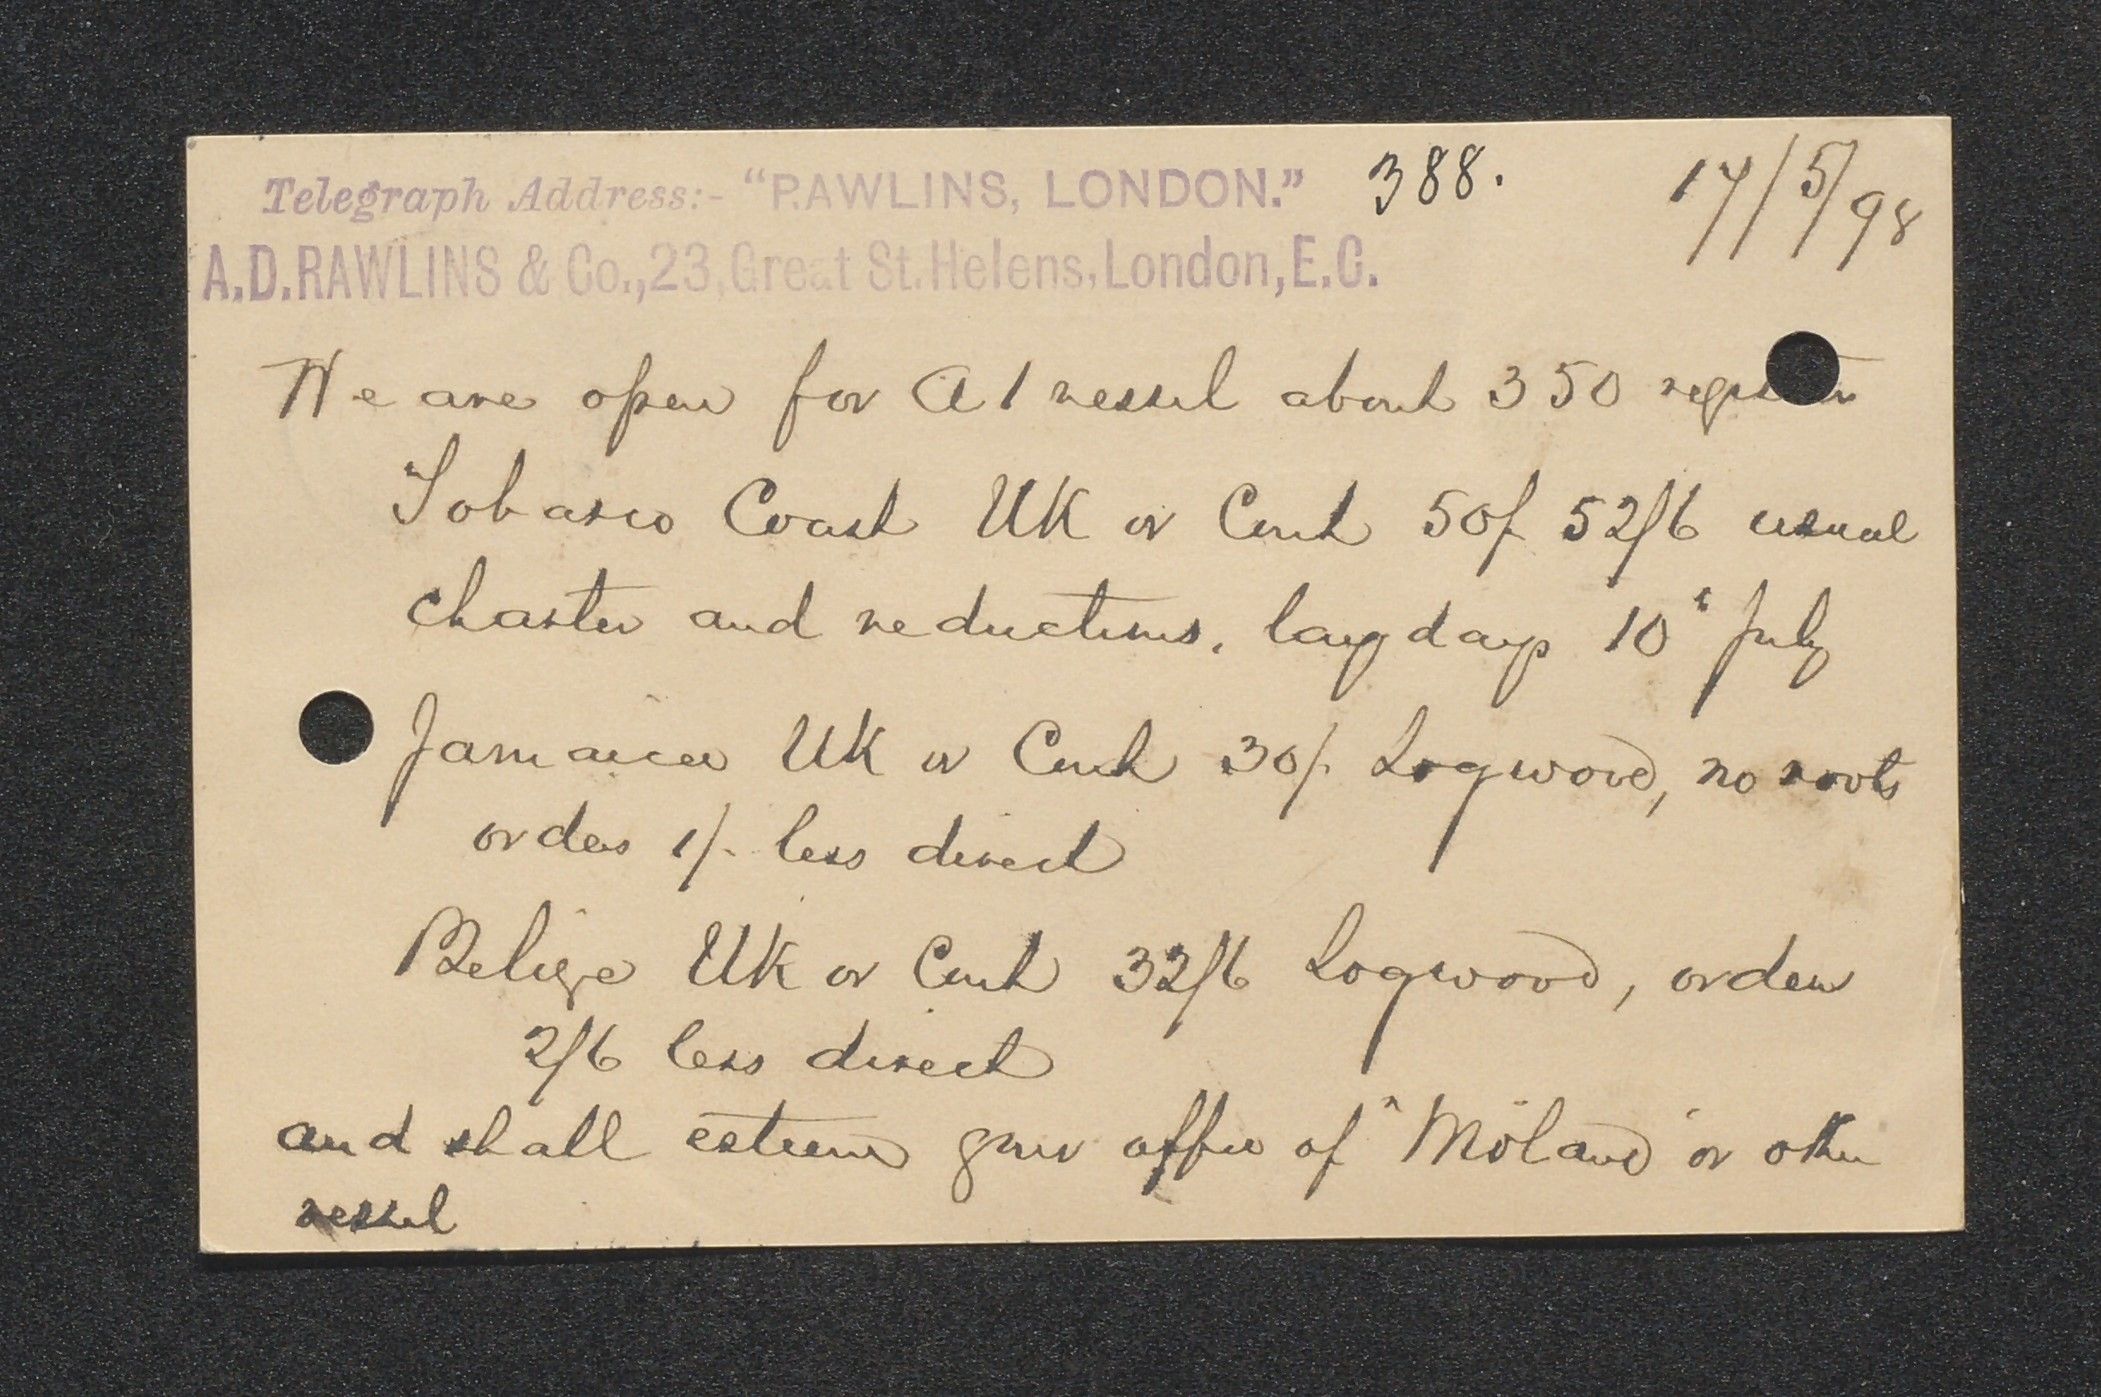 Telegraph Address:- "RAWLINS, LONDON." 388. 17/5/98
A.D. RAWLINS & Co., 23, Great St. Helens, London, E.C.
We are open for A1 vessel about 350 register
Tobasco Coast UK or Cont 50/ 52/6 usual
charter and reductions. lay days 10t July
Jamaica UK or Cont 30/- Logwood, no roots
orders 1/- less direct
Belize UK or Cont 32/6 Logwood, orders
2/6 less direct
and shall esteem your offer of "Möland" or other
vessel